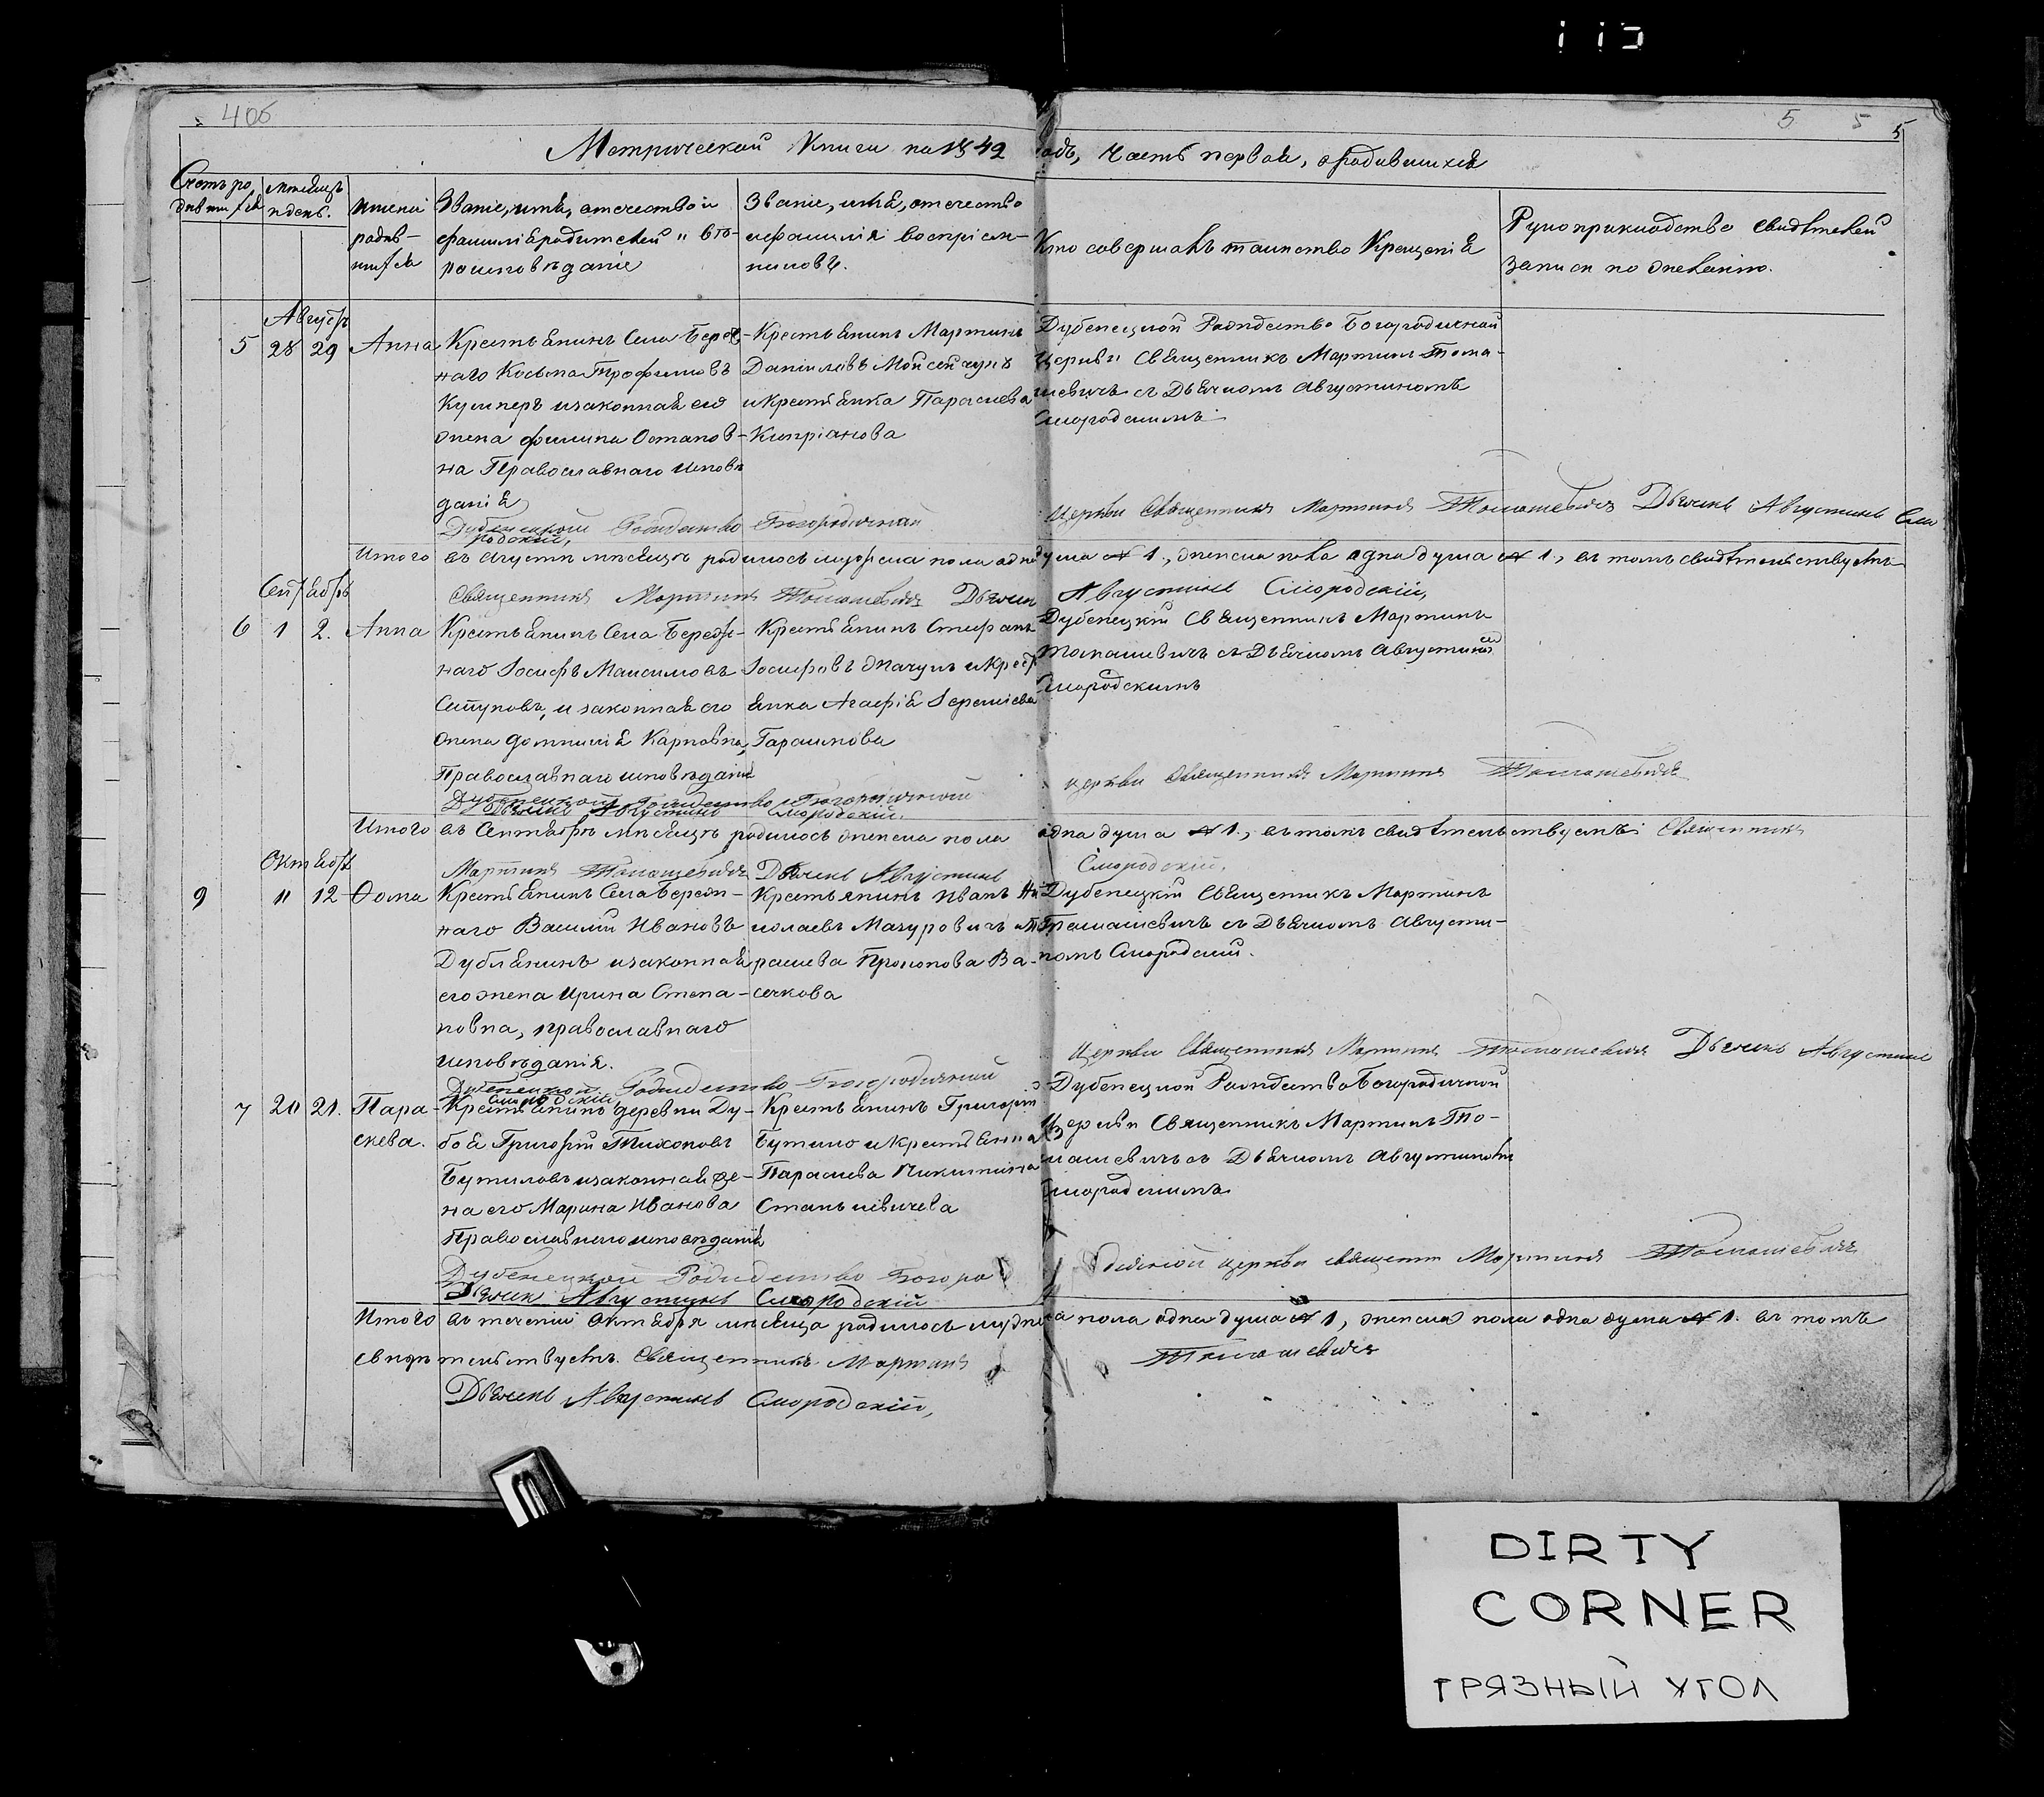 4 об
5 5 5
Метрической Книги на 1842 годъ, Часть первая, о родившихся
Счетъ родившихся
Мѣсяцъ и день.
Имена родив-
шихся
Званіе, имя, отечество и
фамилія родителей и кто-
ро исповѣданіе
Званіе, имя, отечество
и фамилія воспріем-
никовъ.
Кто совершалъ таинство Крещенія
Рукоприкладство свидѣтелей
записи по желанію.
Августъ
5 28 29 Анна
Крестьянинъ Села Береж-
наго Косьма Трофимовъ
Кушнеръ и законная его
жена Остапов-
на Православнаго исповѣ
данія
Крестьянинъ Мартинъ
Даніиловъ Мойсейчукъ
и Крестьянка Параскева
Кипріанова
Дубенецкой Рождество Богородичной
Церкви Священникъ Мартинъ Тома-
шевичъ съ Дьячкомъ Августиномъ
Смородскимъ
Дубенецкой Рождество Богородичной Церкви Священникъ Мартинъ Томашевичъ Дьячекъ Августинъ Смо
родскій,
Итого въ Августѣ мѣсяцѣ родилось мужеска пола одна душа № 1, женска пола одна душа № 1, въ томъ свидѣтельствуетъ
Священникъ Мартинъ Томашевичъ Дьячекъ Августинъ Смородскій,
Сентябрь
6 1 2. Анна
Крестьянинъ Села Береж-
наго Іосифъ Максимовъ
и законная его
жена Домникія Карповна,
Православнаго исповѣданія
Крестьянинъ Стефанъ
Іосифовъ и Крест
янка Агафія Іереміева
Гарасимова
Дубенецкій Священникъ Мартинъ
Томашевичъ съ Дьячкомъ Августиномъ
Смородскимъ
Дубенецкой Рождество Богородичной церкви Священникъ Мартинъ Томашевичъ
Дьячекъ Августинъ Смородскій.
Итого въ Сентябрѣ мѣсяцѣ родилось женска пола одна душа № 1., въ томъ свидѣтельствуетъ Священникъ
Мартинъ Томашевичъ Дьячекъ Августинъ Смородскій.
Октябрь
9 11 12 Ѳома
Крестьянинъ Села Береж-
наго Василій Ивановъ
Дублянинъ и законная
его жена Ирина Степа-
новна, православнаго
исповѣданія.
Крестьянинъ Иванъ Ни
колаевъ Мазуровичъ и Па
раскева Прокопова Ва-
сечкова
Дубенецкій Священникъ Мартинъ
Томашевичъ съ Дьячкомъ Августи-
номъ Смородский.
Дубенецкой Рождество Богородичной Церкви Священникъ Мартинъ Томашевичъ Дьячекъ Августинъ
Смородскій,
7 20 21. Пара-
скева.
Крестьянинъ деревни Ду-
боя Григорій Тихоновъ
Бутиловъ и законная же-
на его Марина Иванова
Православнаго исповѣданія
Крестьянинъ Григорій
Бутило и Крестьянка
Параскева Никитина
Станкевичева
Дубенецкой Рождество Богородичной
Церкви Священникъ Мартинъ То-
машевичъ съ Дьячкомъ Августиномъ
Смородскимъ
Дубенецкой Рождество Богородичной церкви священн Мартинъ Томашевичъ
Дьячек Августинъ Смородскій
Итого въ теченіи Октября мѣсяца родилось мужеска пола одна душа № 1, женска пола одна душа № 1. въ томъ
свидѣтельствуетъ. Священникъ Мартинъ Томашевичъ
Дьячекъ Августинъ Смородскій,
DIRTY
CORNER
ГРЯЗНЫЙ УГОЛ